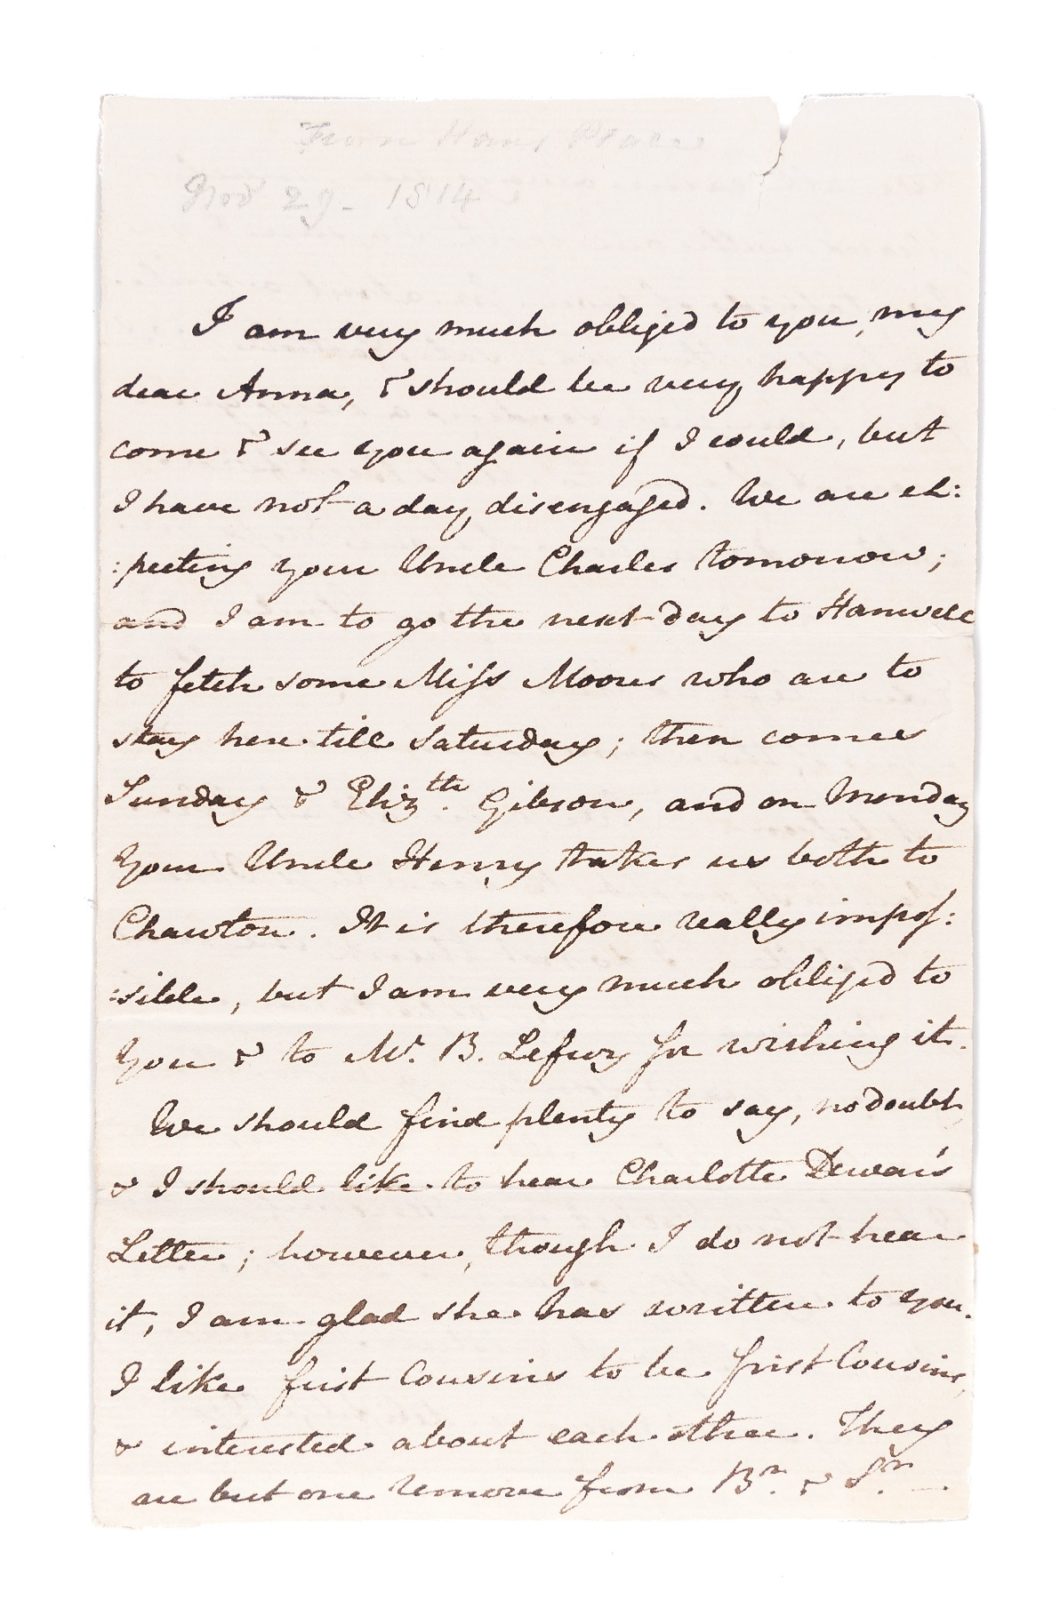 From Hans Place
Nov 29- 1814
I am very much obliged to you, my
dear Anna, & should be very happy to
come & see you again if I could, but
I have not a day disengaged. We are ex:
:pecting your Uncle Charles tomorrow;
and I am to go the next day to Hanwell
to fetch some Miss Moores who are to
stay here till Saturday; then comes
Sunday & Eliz.th Gibson, and on Monday
Your Uncle Henry takes us both to
Chawton. It is therefore really impos:
:sible, but I am very much obliged to
You & to Mr. B. Lefroy for wishing it.
We should find plenty to say, no doubt,
& I should like to hear Charlotte Dewar's
Letter; however, though I do not hear
it, I am glad she has written to you.
I like first Cousins to be first Cousins,
& interested about each other. They
are but one remove from Br. & Sr. —